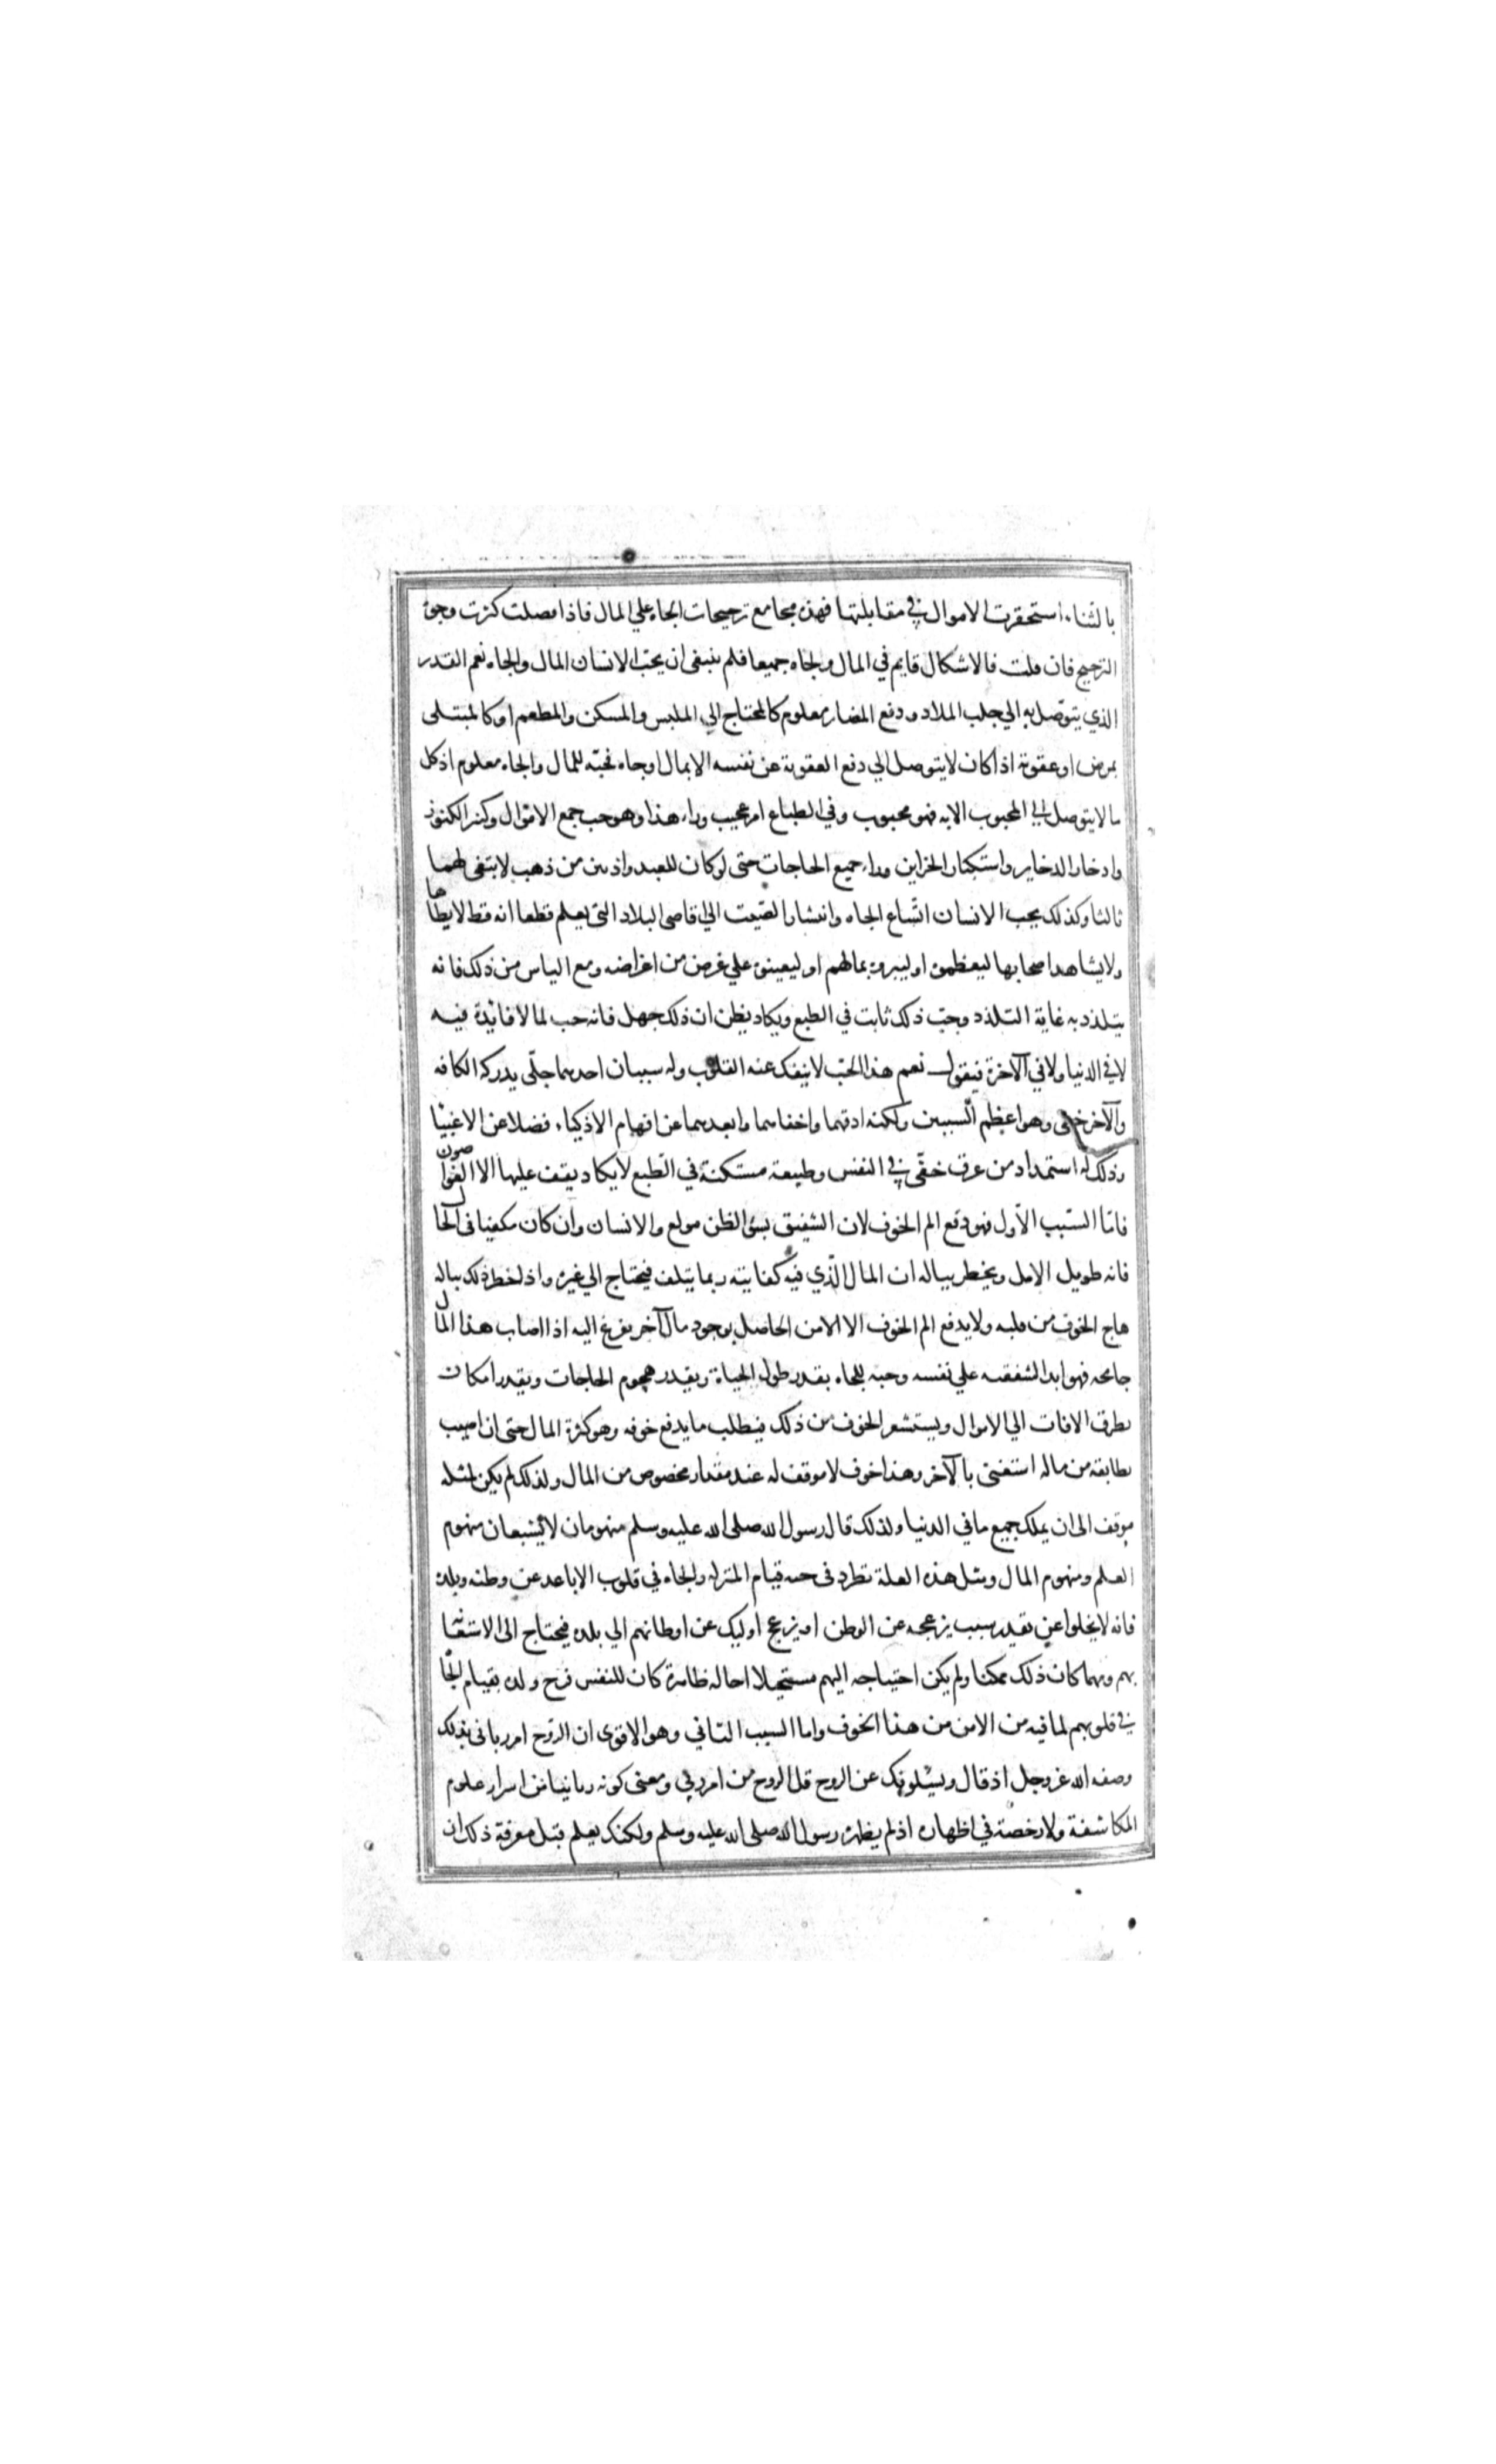 بالثناء استحقرت الاموال في مقابلتها فهذه مجامع ترجيحات الجاه علي المال فاذا فصلت كثرت وجوه
الترجيح فان قلت فالاشكال قايم في المال والجاه جميعا فلم ينبغي ان يحب الانسان المال والجاه نعم القدر
الذي يتوصل به الي جلب الملاد ودفع المضار معلوم كالمحتاج الي الملبس والمسكن والمطعم او كالمبتلى
بمرض او عقوبة اذا كان لا يتوصل الي دفع العقوبة عن نفسه الا بمال او جاه فحبّه للمال والجاه معلوم اذ كل
ما لا يتوصل الي المحبوب الا به فهو محبوب وفي الطباع امر عجيب وراء هذا وهو حب جمع الاموال وكنز الكنوز
وادخار الدخاير واستكثار الخزاين وراء جميع الحاجات حتى لو كان للعبد واديين من ذهب لابتغى لهما
ثالثا وكذلك يحب الانسان اتّساع الجاه وانتشار الصّيت الي اقاصي البلاد التي يعلم قطعا انه قط لا يطاها
ولا يشاهد اصحابها ليعظموه او ليبروه بمالهم او ليعينوه علي غرض من اغراضه ومع الياس من ذلك فانه
يتلذذ به غاية التلذذ وحبّ ذلك ثابت في الطبع ويكاد يظن ان ذلك جهل فانه حب لما لا فائدة فيه
لا في الدنيا ولا في الآخرة فيقول نعم هذا الحبّ لا ينفك عنه القلوب وله سببان احدهما جلّي يدركه الكافه
والآخر خفي وهو اعظم السببين ولكنه ادقهما واخفاهما وابعدهما عن افهام الاذكياء فضلا عن الاغبيا
وذلك له استمداد من عرق خفّي في النفس وطبيعة مستكنة في الطّبع لا يكاد يقف عليها الا الغواصون
فامّا السّبب الاوّل فهو دفع الم الخوف لان الشفيق بسؤ الظن مولع والانسان وان كان مكفيا فى الحال
فانه طويل الامل ويخطر بباله ان المال الّذي فيه كفايته ربما يتلف فيحتاج الي غيره واذا خطر ذلك بباله
هاج الخوف من قلبه ولا يدفع الم الخوف الا الامن الحاصل بوجود مال آخر يفزع اليه اذا اصاب هذا المال
جايحه فهو ابدا لشفقته علي نفسه وحبه للحياه بقدر طول الحياة ويقدر هجوم الحاجات ويقدر امكان
تطرق الافات الي الاموال ويستشعر الخوف من ذلك فيطلب ما يدفع خوفه وهو كثرة المال حتى ان اصيب
بطايفة من ماله استغنى بالآخر وهذا خوف لا موقف له عند مقدار مخصوص من المال ولذلك لم يكن لمثله
موقف الى ان يملك جميع ما في الدنيا ولذلك قال رسول الله صلى الله عليه وسلم منهومان لا يشبعان منهوم
العلم ومنهوم المال ومثل هذه العلة تطرد فى حبه قيام المنزله والجاه في قلوب الاباعد عن وطنه وبلده
فانه لا يخلوا عن تقدير سبب يزعجه عن الوطن او يزعج اوليك عن اوطانهم الي بلده فيحتاج الى الاستغنا
بهم ومهما كان ذلك ممكنا ولم يكن احتياجه اليهم مستحيلا احالة ظاهرة كان للنفس فرح ولذه بقيام الجا
في قلوبهم لما فيه من الامن من هذا الخوف واما السبب الثاني وهو الاقوى ان الرّوح امر رباني بذلك
وصفه الله عز وجل اذ قال ويسئلونك عن الروح قل الروح من امر ربي ومعنى كونه ربانيا من اسرار علوم
المكاشفة ولا رخصة في اظهاره اذ لم يظهره رسول الله صلى الله عليه وسلم ولكنك يعلم قبل معرفة ذلك ان